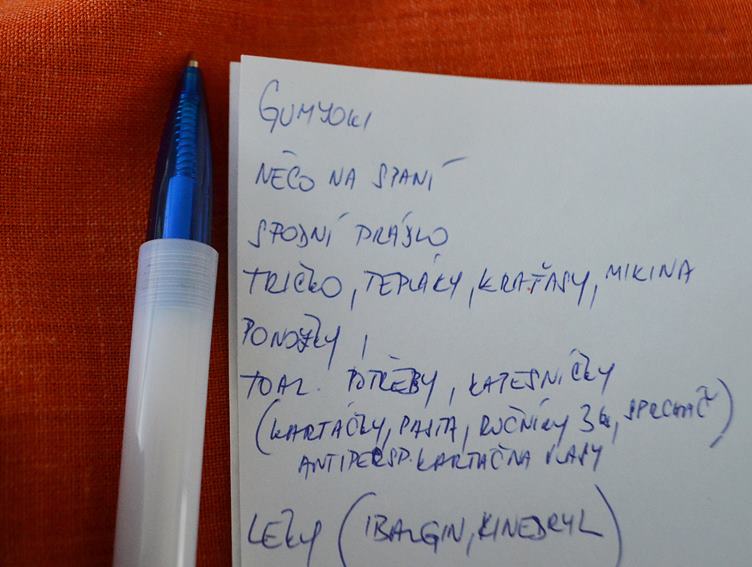 GUMYOKI
NĚCO NA SPANÍ
SPODNÍ PRÁDLO
TRIČKO, TEPLÁKY, KRAŤASY, MIKINA
PONOŽKY,
TOAL. POTŘEBY, KAPESNÍČKY
(KARTÁČKY, PASTA, RUČNÍKY 3x, SPRCHÁČ)
ANTIPERSP. KARTÁČ NA VLASY
LÉKY (IBALGIN, KINEDRYL)